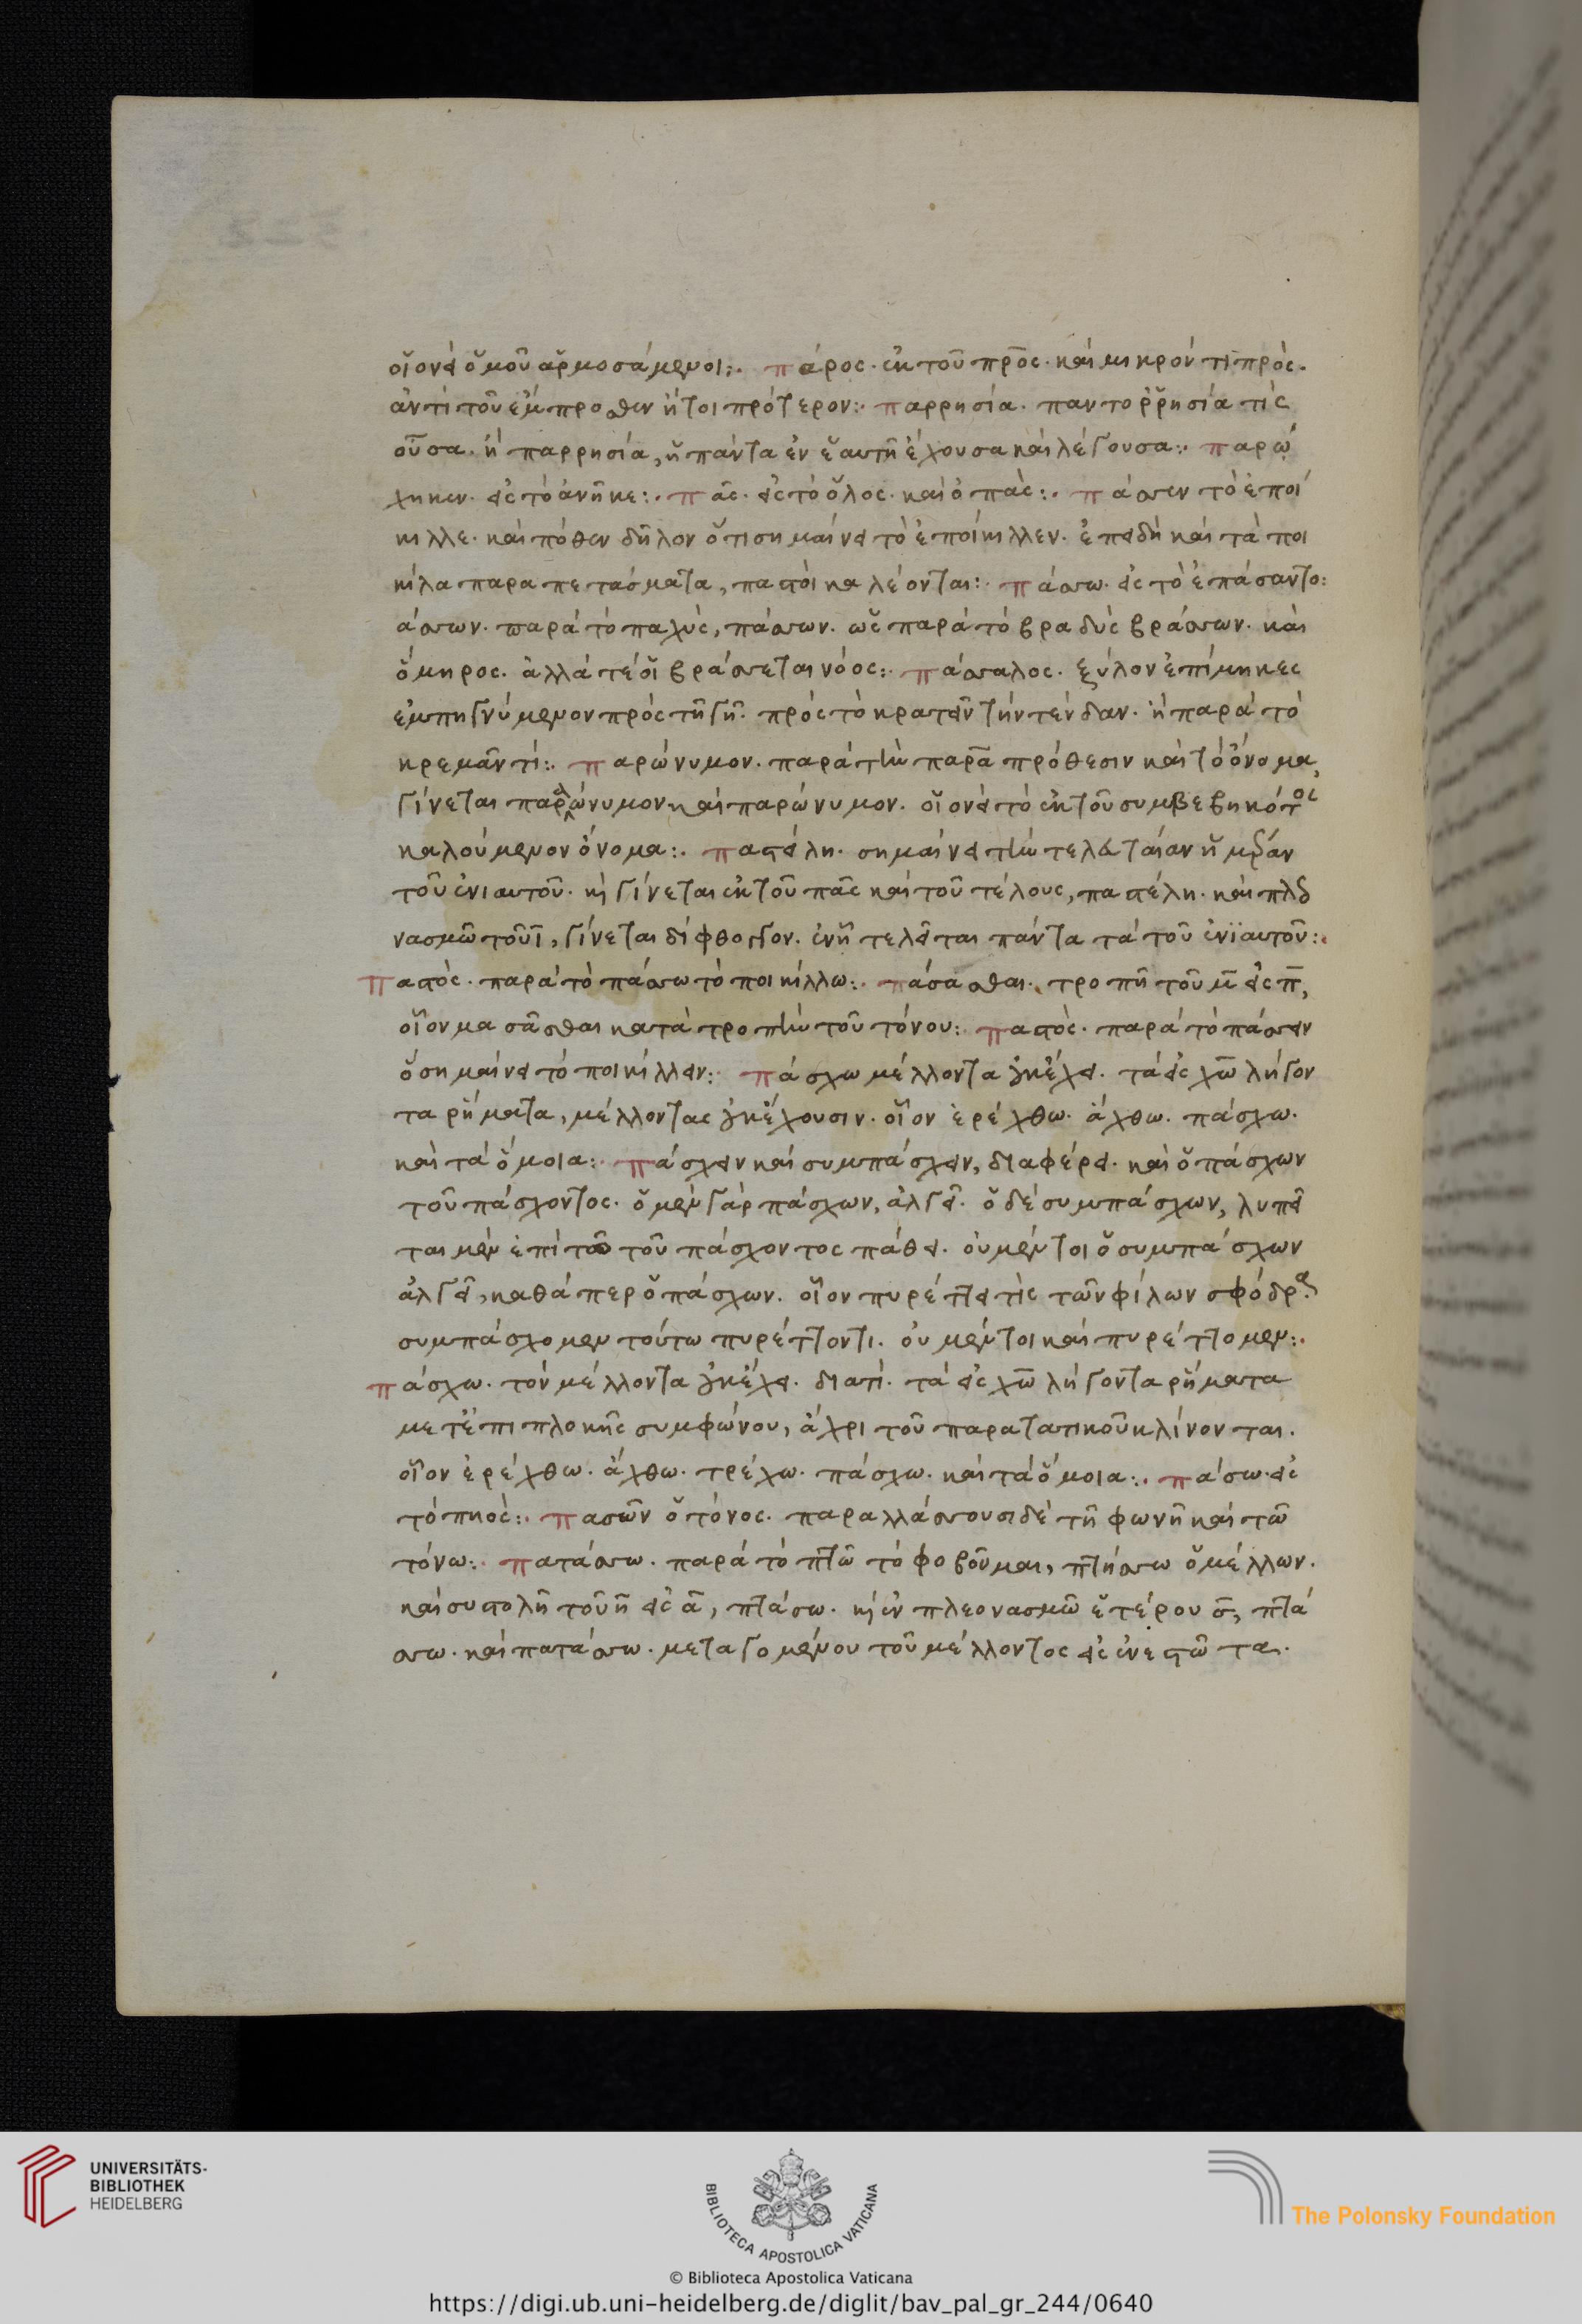 οἷονεὶ ὁμοῦ ἁρμοσάμενοι:. πάρος. ἐκ τοῦ πρὸς. καὶ μικρόν τι πρὸς.
ἀντὶ τοῦ ἔμπροσθεν ἤτοι πρότερον:. παρρησία. παντορρησία τὶς
οὖσα. ἡ παρρησία, ἡ πάντα ἐν ἑαυτῆ ἔχουσα καὶ λέγουσα:. παρώ
χηκεν. εἰς τὸ ἀνῆκε:. πᾶς. εἰς τὸ ὅλος. καὶ ὁ πάς:. πάσσεν τὸ ἐποί
κιλλε. καὶ πόθεν δῆλον ὅτι σημαίνει τὸ ἐποίκιλλεν. ἐπειδὴ καὶ τὰ ποι
κίλα παραπετάσματα, παστοὶ καλέονται:. πάσσω. εἰς τὸ ἐπάσαντο:
άσσων. παρὰ τὸ παχὺς, πάσσων. ὡς παρὰ τὸ βραδὺς βράσσων. καὶ
ὅμηρος. ἀλλά τέ οἱ βράσσεται νόος:. πάσσαλος. ξύλον ἐπίμηκες
ἐμπηγνύμενον πρὸς τῆ γῆ. πρὸς τὸ κρατεῖν τὴν τένδαν. ἢ παρὰ τὸ
κρεμᾶν τί:. παρώνυμον. παρὰ τὴν παρὰ πρόθεσιν καὶ τὸ ὄνομα,
γίνεται παραώνυμον καὶ παρώνυμον. οἷονεὶ τὸ ἐκ τοῦ συμβεβηκότος
καλούμενον ὄνομα:. παστείλη. σημαίνει τὴν τελευταίαν ἡμέραν
τοῦ ἐνιαυτοῦ. καὶ γίνεται ἐκ τοῦ πᾶς καὶ τοῦ τέλους, παστέλη. καὶ πλεο
νασμῶ τοῦ ῑ, γίνεται δίφθογγον. ἐν ἧ τελεῖται πάντα τὰ τοῦ ἐνϊαυτοῦ:.
Παστὸς. παρὰ τὸ πάσσω τὸ ποικίλλω:. πάσασθαι. τροπῆ τοῦ μ̄ εἰς π̄,
οἷον μασᾶσθαι κατὰ τροπὴν τοῦ τόνου:. παστὸς. παρὰ τὸ πάσσειν
ὃ σημαίνει τὸ ποικίλλειν:. πάσχω μέλλοντα οὐκ ἔχει. τὰ εἰς χω λήγον
τα ρήματα, μέλλοντας οὐκ ἔχουσιν. οἷον ἐρέχθω. ἄχθω. πάσχω.
καὶ τὰ ὅμοια:. πάσχειν καὶ συμπάσχειν, διαφέρει. καὶ ὁ πάσχων
τοῦ πάσχοντος. ὁ μὲν γὰρ πάσχων, ἀλγεῖ. ὁ δὲ συμπάσχων, λυπεῖ
ται μὲν ἐπὶ τῶ τοῦ πάσχοντος πάθει. οὐ μέντοι ὁ συμπάσχων
ἀλγεῖ, καθάπερ ὁ πάσχων. οἷον πυρέττει τὶς τῶν φίλων σφόδρα.
συμπάσχομεν τούτω πυρέττοντι. οὐ μέντοι καὶ πυρέττομεν:.
πάσχω. τὸν μέλλοντα οὐκ ἔχει. διατί. τὰ εἰς χω λήγοντα ρήματα
μετ' ἐπιπλοκῆς συμφώνου, ἄχρι τοῦ παρατατικοῦ κλίνονται.
οἷον ἐρέχθω. ἄχθω. τρέχω. πάσχω. καὶ τὰ ὅμοια:. πάσω. εἰς
τὸ πηὸς:. πασῶν ὁ τόνος. παραλλάσσουσι δὲ τῆ φωνῆ καὶ τῶ
τόνω:. πατάσσω. παρὰ τὸ πτῶ τὸ φοβοῦμαι, πτήσσω ὁ μέλλων.
καὶ συστολῆ τοῦ η̄ εἰς ᾱ, πτάσω. καὶ ἐν πλεονασμῶ ἑτέρου σ̄, πτά
σσω. καὶ πατάσσω. μεταγομένου τοῦ μέλλοντος εἰς ἐνεστῶτα.
UNIVERSITÄTS-
BIBLIOTHEK
HEIDELBERG
BIBLIOTECA APOSTOLICA VATICANA
The Polonsky Foundation
© Biblioteca Apostolica Vaticana
https://digi.ub.uni-heidelberg.de/diglit/bav_pal_gr_244/0640